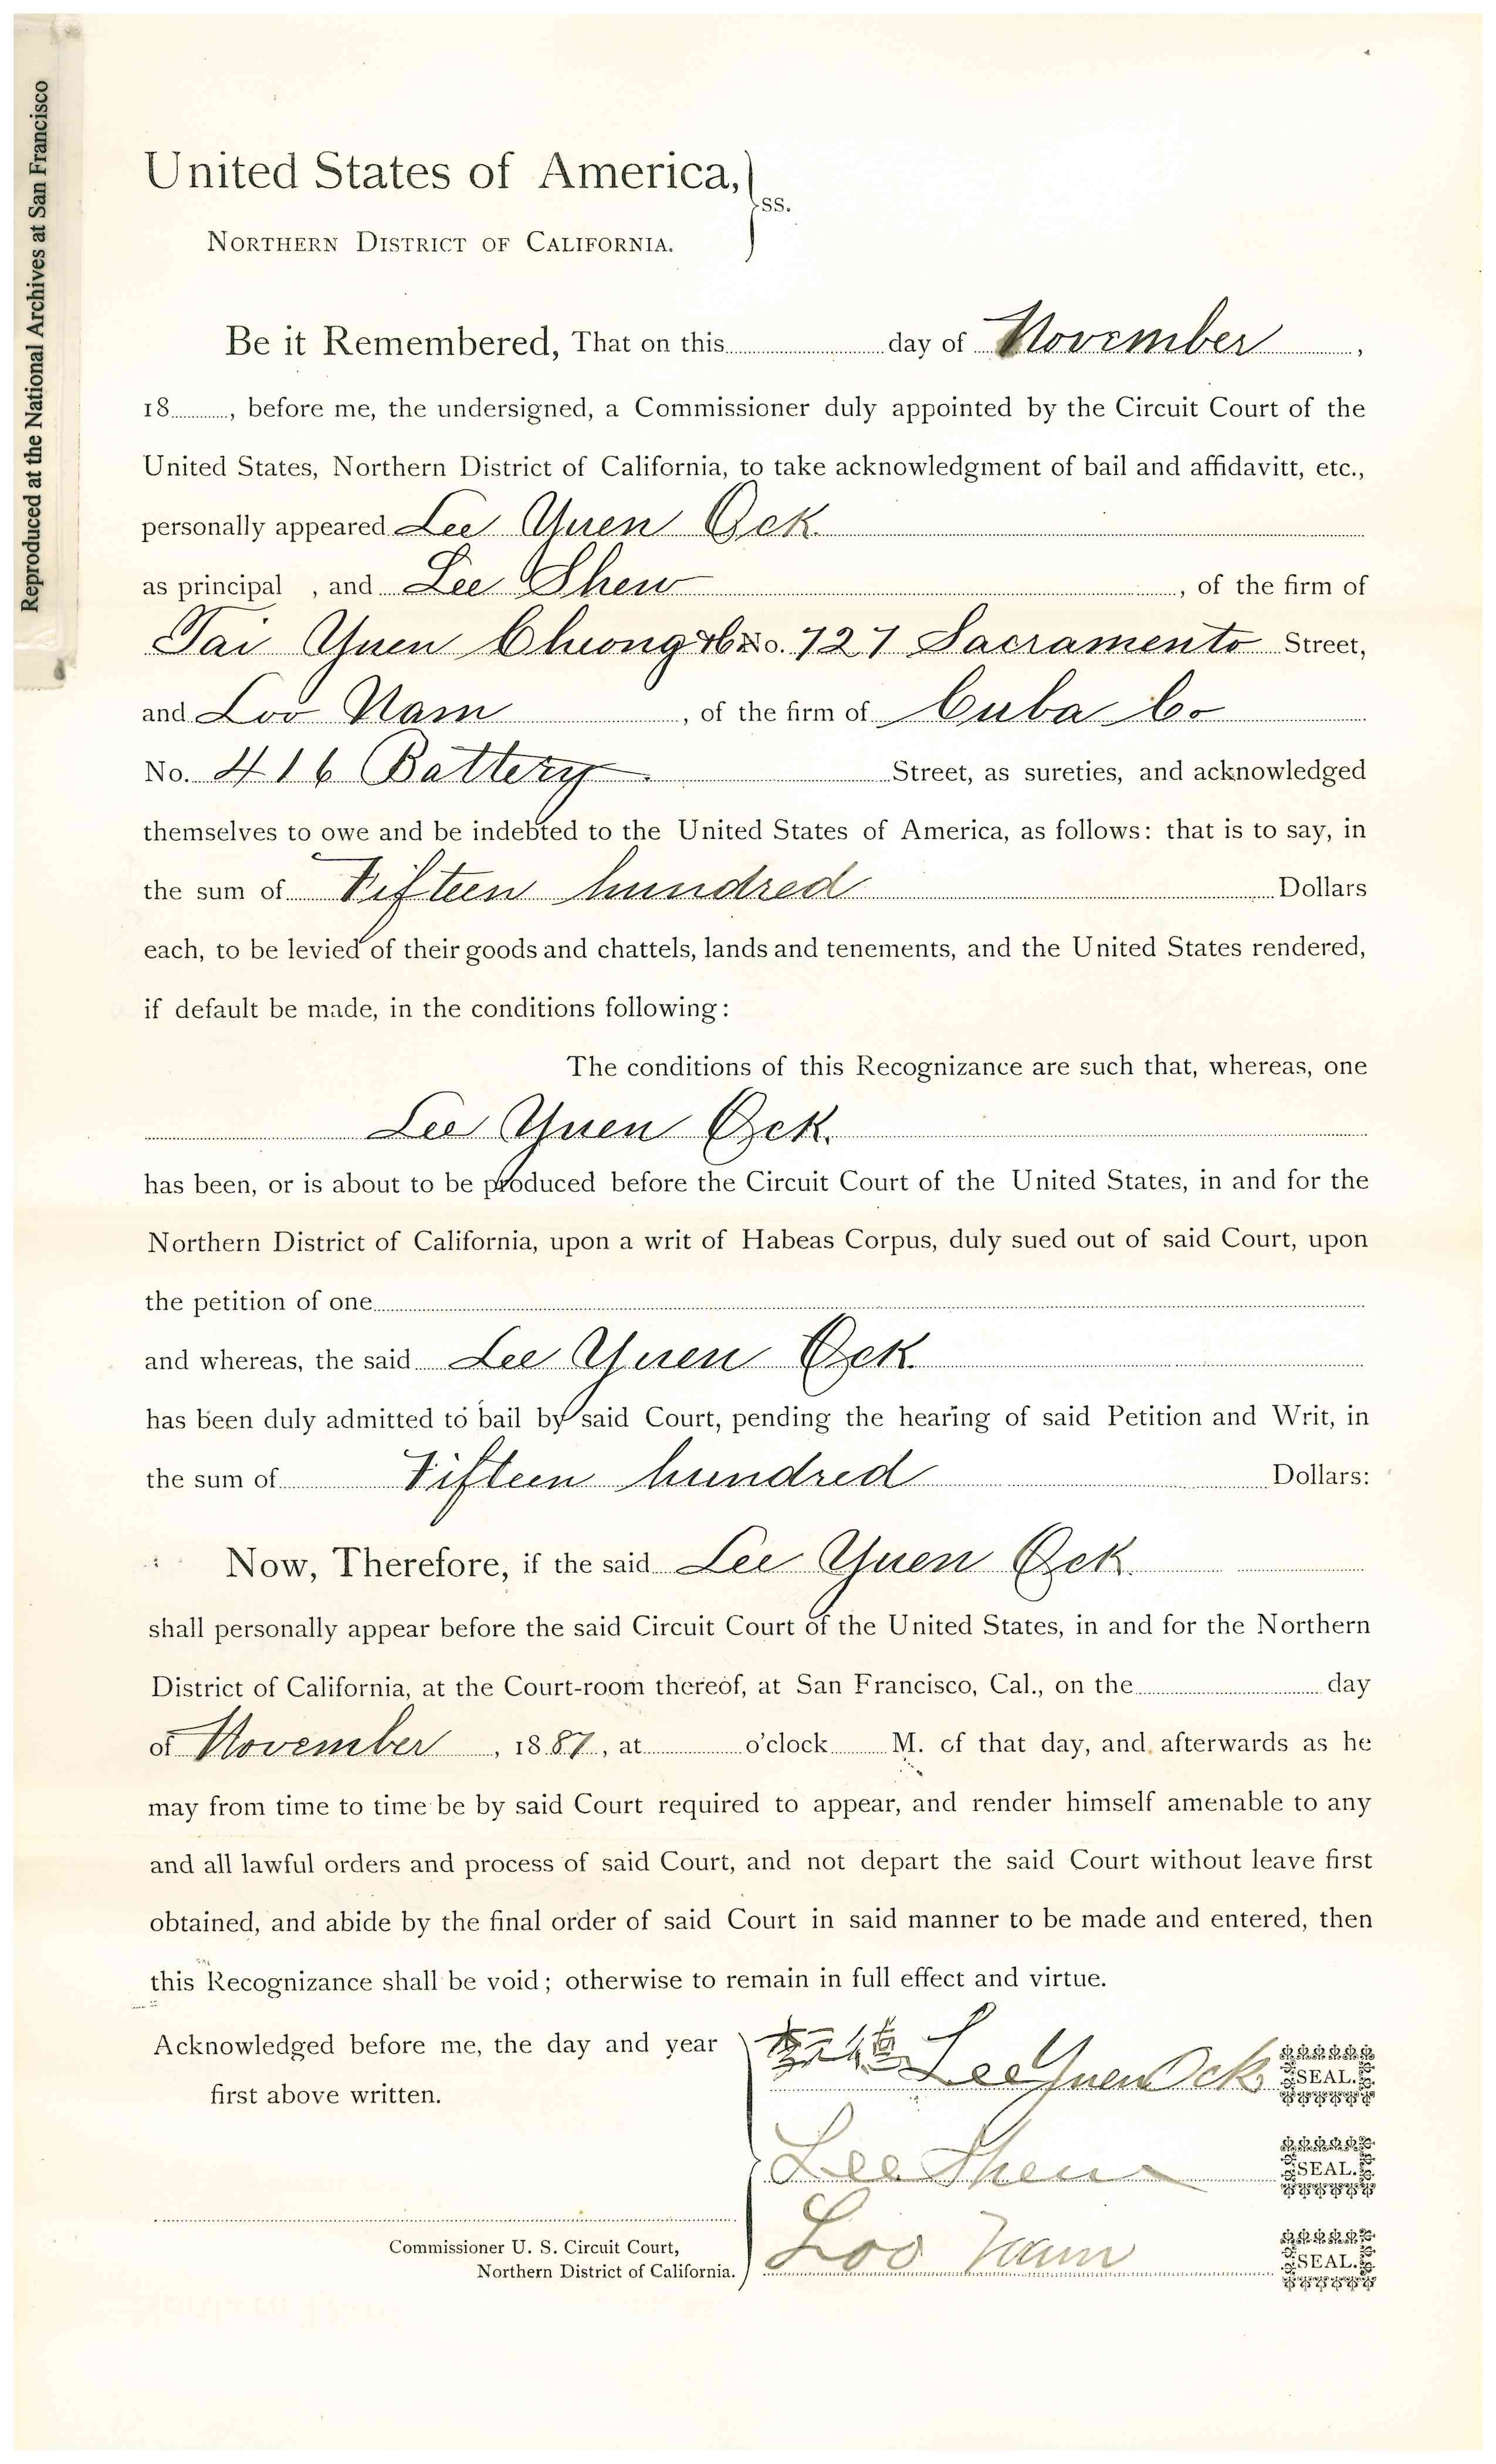 Reproduced at the National Archives at San Francisco
United States of America,
ss.
NORTHERN DISTRICT OF CALIFORNIA.
Be it Remembered, That on this day of November ,
18 , before me, the undersigned, a Commissioner duly appointed by the Circuit Court of the
United States, Northern District of California, to take acknowledgment of bail and affidavitt, etc.,
personally appeared Lee Yuen Ock
as principal , and Lee Shew , of the firm of
Tai Yuen Cheong & Co No. 727 Sacramento Street,
and Loo Nam , of the firm of Cuba Co
No. 416 Battery Street, as sureties, and acknowledged
themselves to owe and be indebted to the United States of America, as follows: that is to say, in
the sum of Fifteen hundred Dollars
each, to be levied of their goods and chattels, lands and tenements, and the United States rendered,
if default be made, in the conditions following:
The conditions of this Recognizance are such that, whereas, one
Lee Yuen Ock.
has been, or is about to be produced before the Circuit Court of the United States, in and for the
Northern District of California, upon a writ of Habeas Corpus, duly sued out of said Court, upon
the petition of one
and whereas, the said Lee Yuen Ock
has been duly admitted to bail by said Court, pending the hearing of said Petition and Writ, in
the sum of Fifteen hundred Dollars:
Now, Therefore, if the said Lee Yuen Ock
shall personally appear before the said Circuit Court of the United States, in and for the Northern
District of California, at the Court-room thereof, at San Francisco, Cal., on the day
of November , 1887, at o'clock M. of that day, and afterwards as he
may from time to time be by said Court required to appear, and render himself amenable to any
and all lawful orders and process of said Court, and not depart the said Court without leave first
obtained, and abide by the final order of said Court in said manner to be made and entered, then
this Recognizance shall be void; otherwise to remain in full effect and virtue.
Acknowledged before me, the day and year
first above written.
Lee Yuen Ock SEAL.
Lee Shew SEAL.
Loo Nam SEAL.
Commissioner U. S. Circuit Court,
Northern District of California.